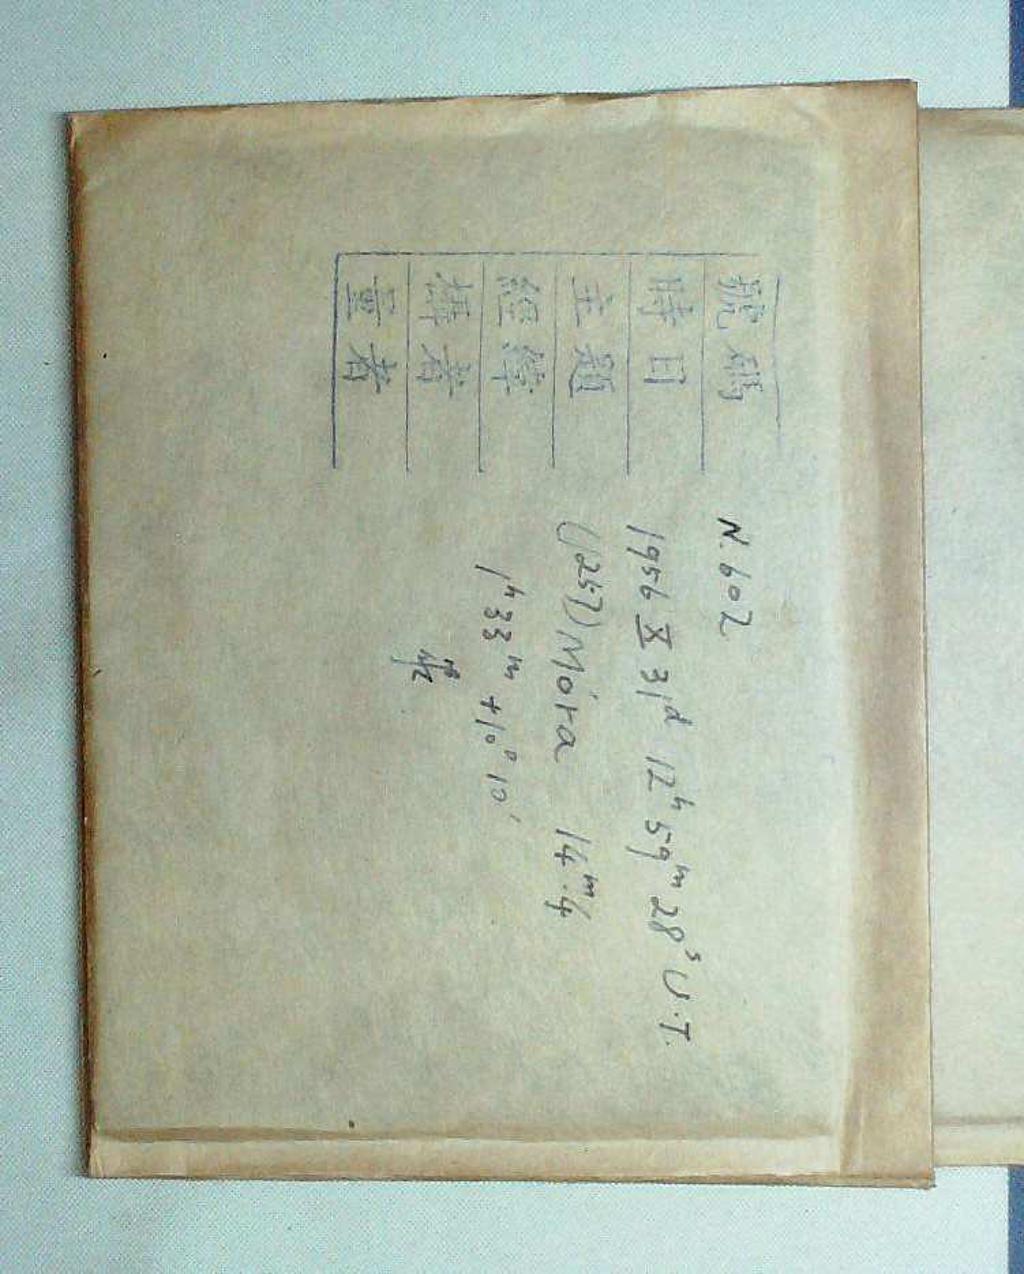 號碼 N. 602
時日 1956 X 31ᵈ 12ʰ 59ᵐ 28ˢ U.T.
主題 (1257) Móra 14ᵐ.4
經緯 1ʰ 33ᵐ +10° 10′
撣者
量者